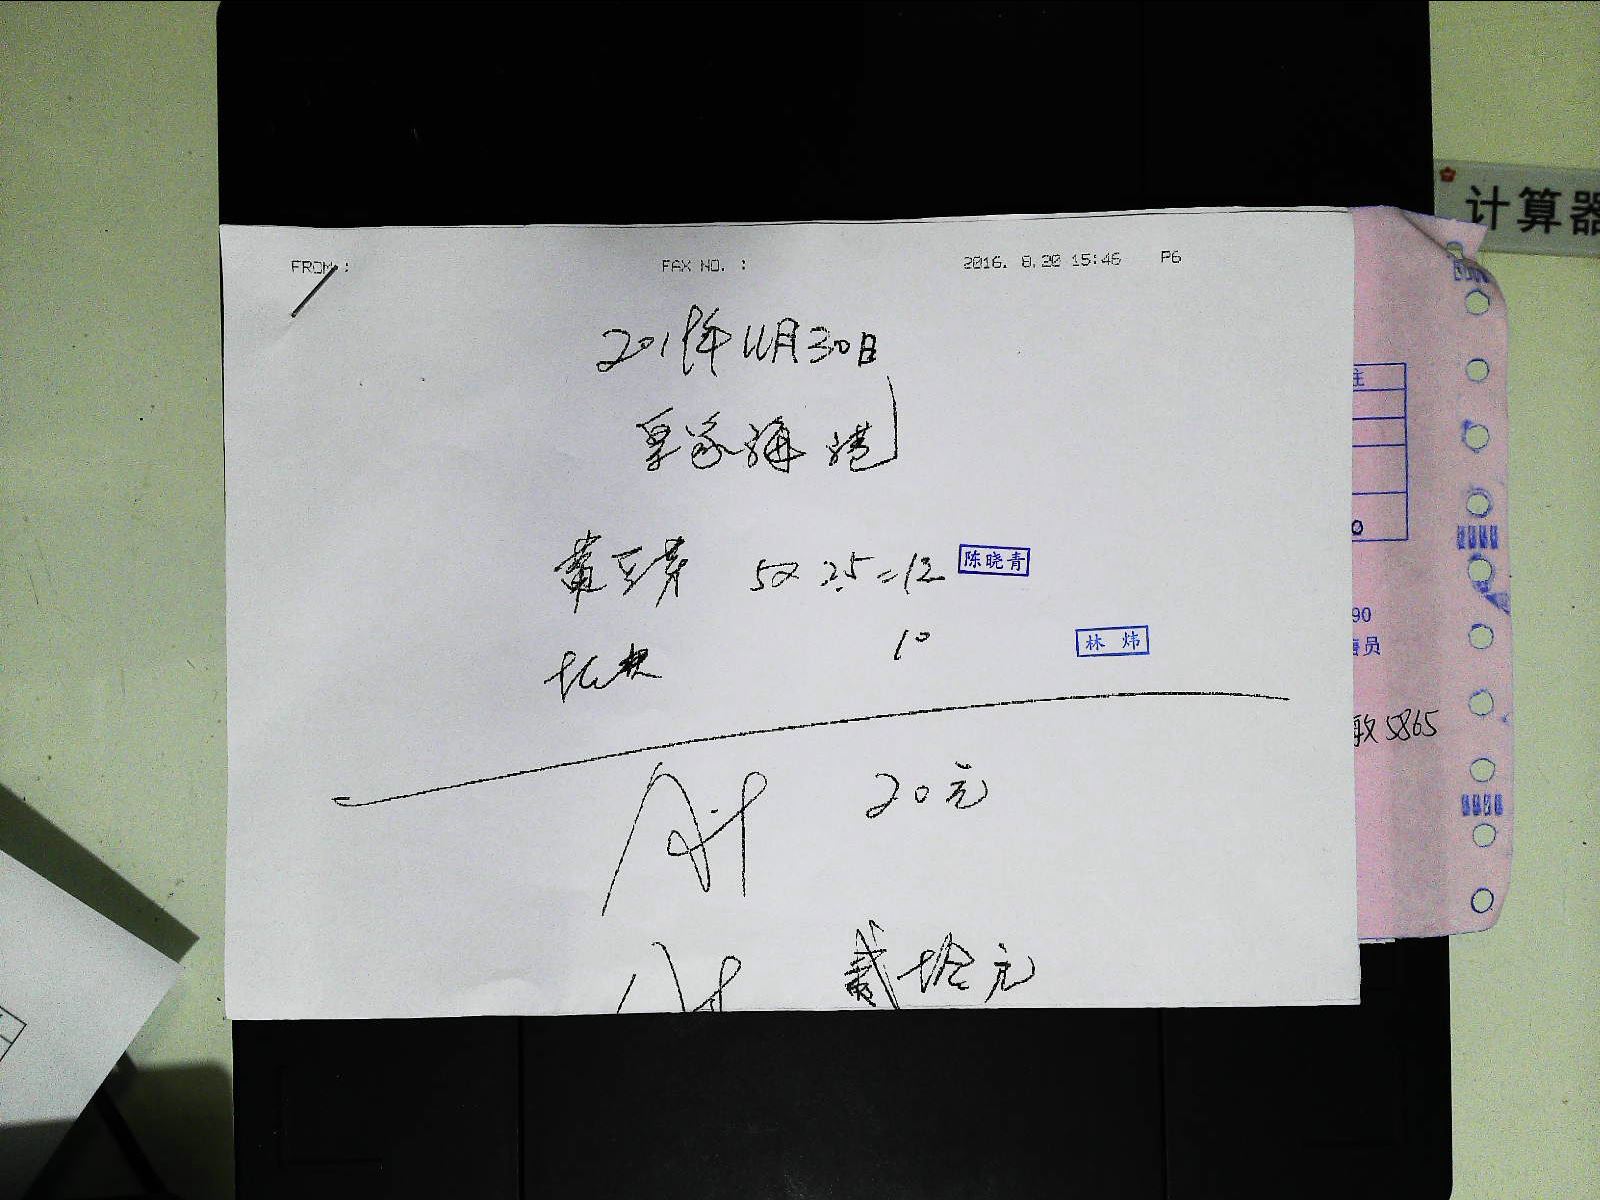 FROM :
FAX NO. :
2016. 8.20 15:46 P6
计算器
2019年11月30日
皇家海港
黄豆芽 5× 2.5=12
陈晓青
10
林炜
20元
合计
贰拾元
主
0
90
唐员
敏5865